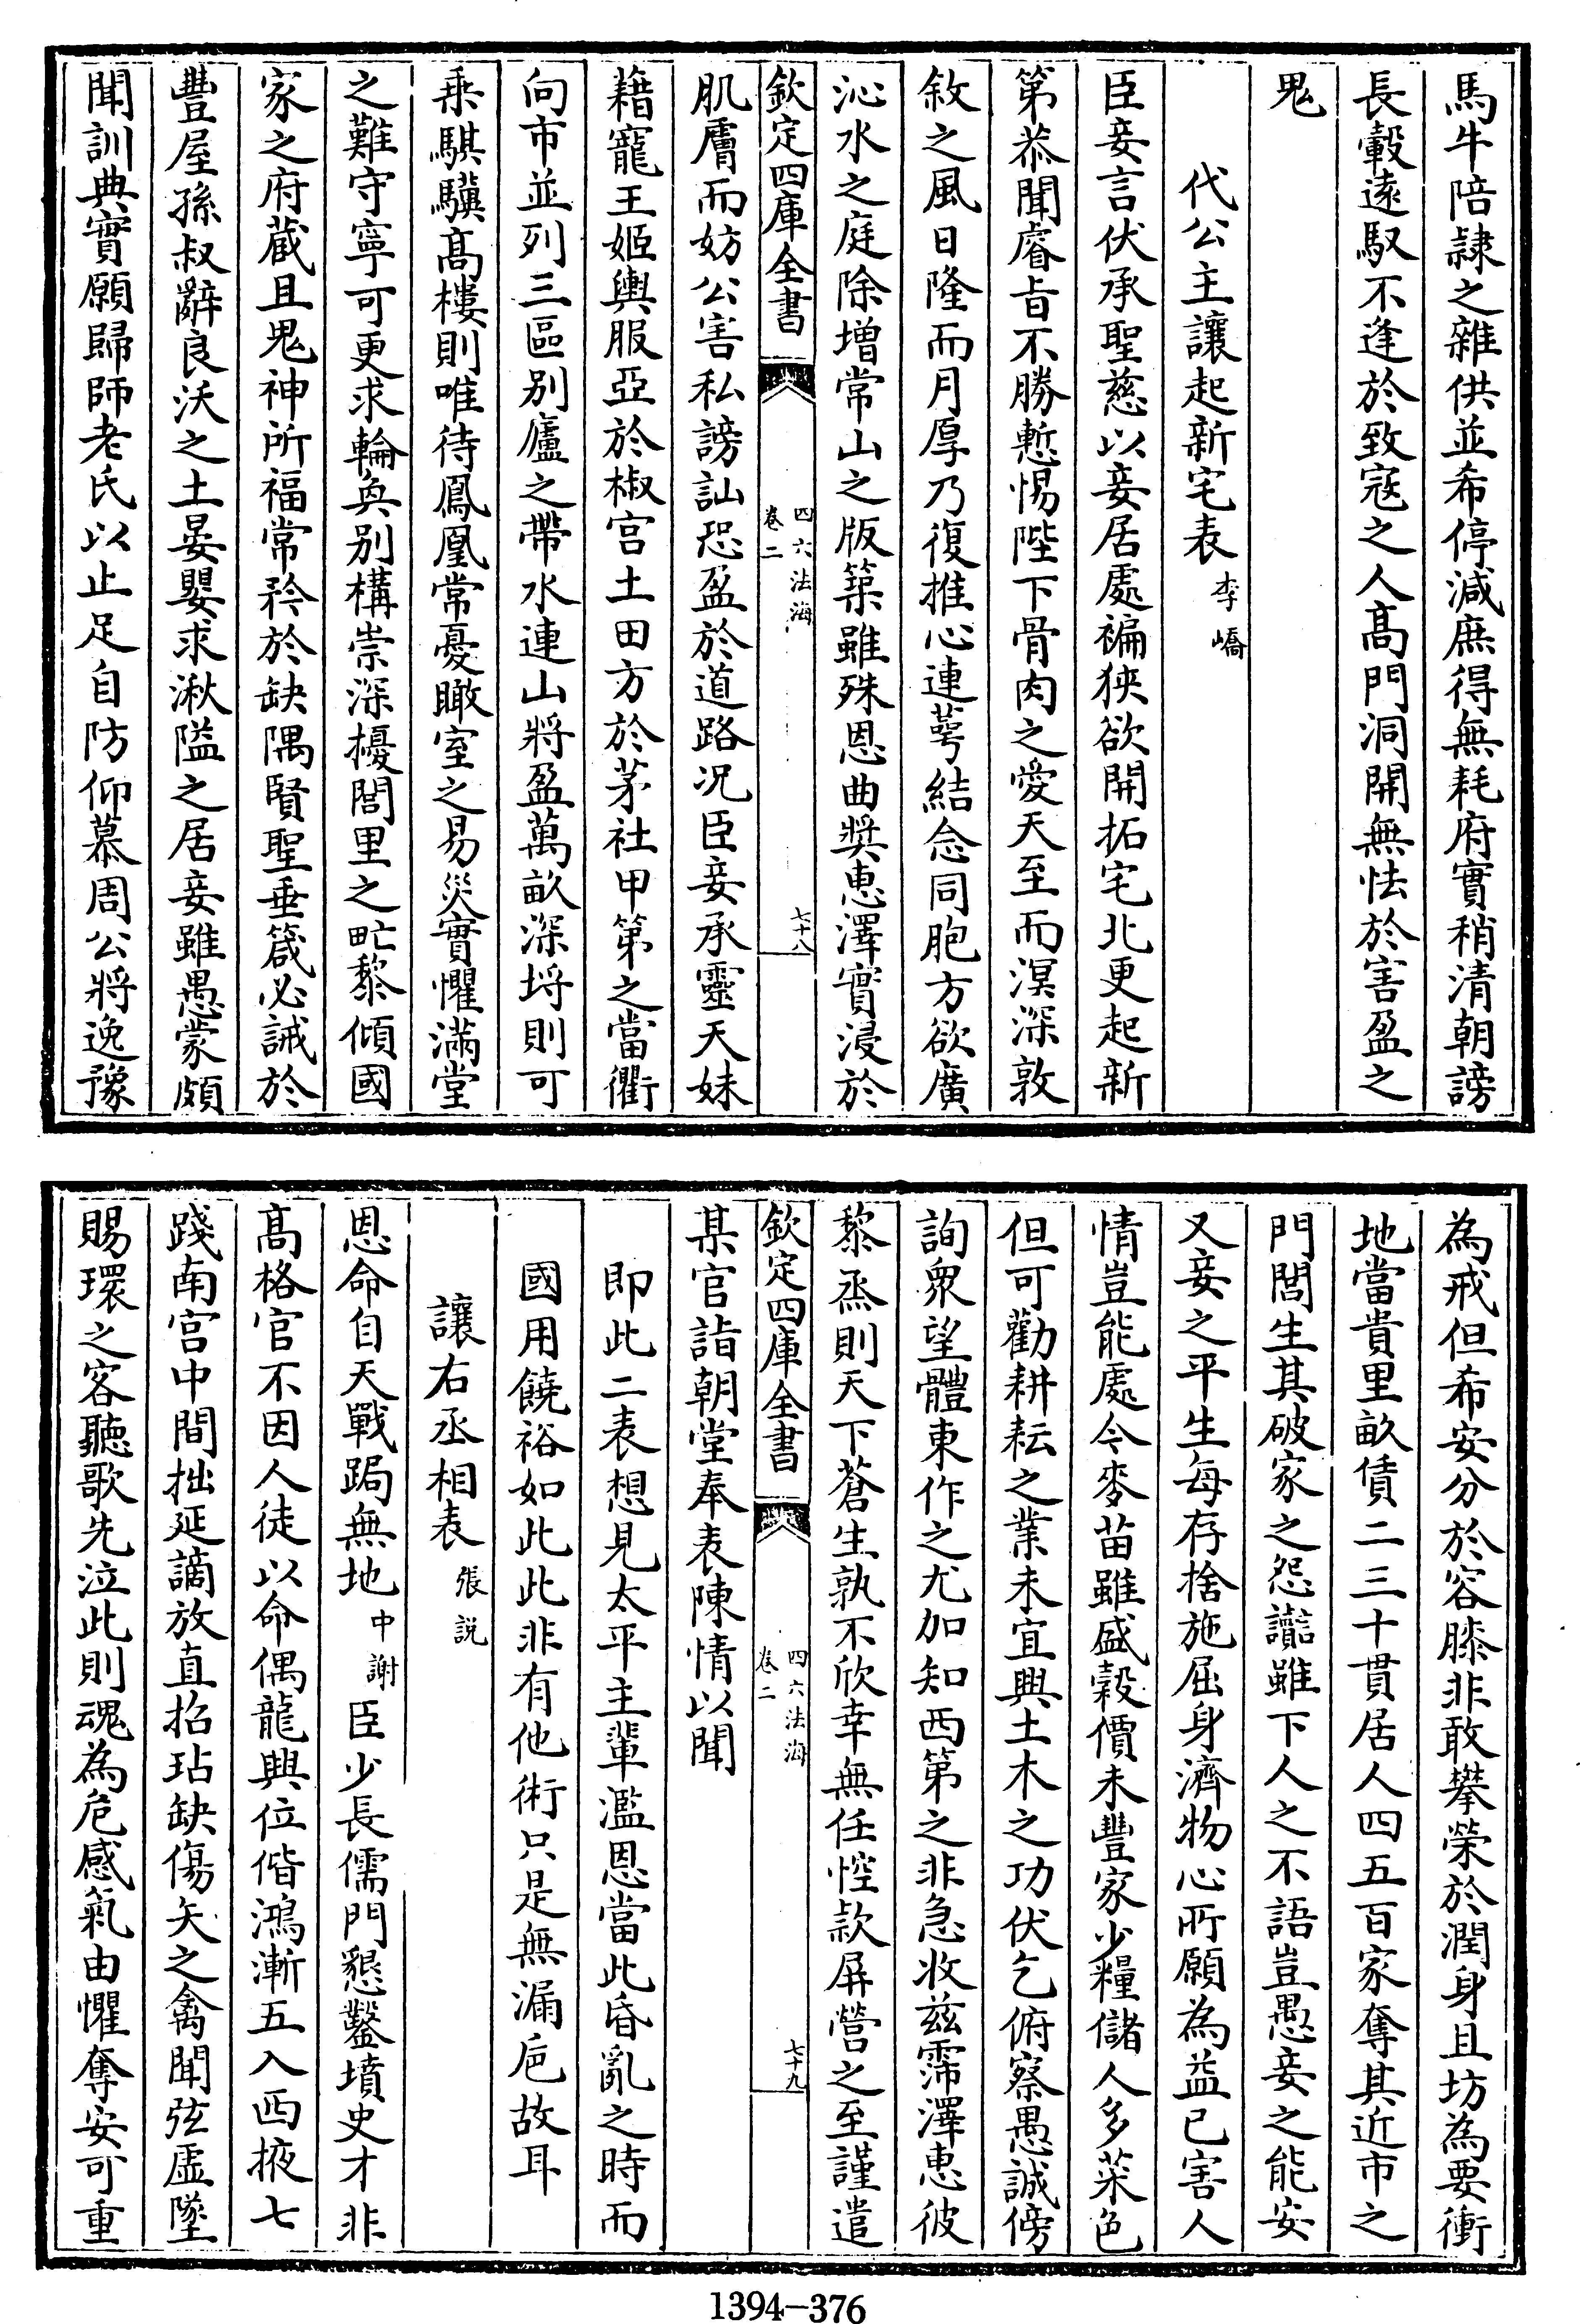 馬牛陪隷之雜供並希停減庶得無耗府實稍清朝謗
長轂遠馭不逢於致寇之人髙門洞開無怯於害盈之
鬼
代公主讓起新宅表 李嶠
臣妾言伏承聖慈以妾居處褊狹欲開拓宅北更起新
第恭聞睿旨不勝慙惕陛下骨肉之愛天至而溟深敦
敘之風日隆而月厚乃復推心連萼結念同胞方欲廣
沁水之庭除增常山之版築雖殊恩曲奬惠澤實浸於
欽定四庫全書 四六法海 卷二 七十八
肌膚而妨公害私謗訕恐盈於道路况臣妾承靈天妹
藉寵王姬輿服亞於椒宫土田方於茅社甲第之當衢
向市並列三區别廬之帶水連山將盈萬畝深埒則可
乗騏驥髙樓則唯待鳳凰常憂瞰室之易災實懼滿堂
之難守寧可更求輪奐别構崇深擾閭里之甿黎傾國
家之府藏且鬼神所福常矜於缺隅賢聖垂箴必誡於
豐屋孫叔辭良沃之土晏嬰求湫隘之居妾雖愚蒙頗
聞訓典實願歸師老氏以止足自防仰慕周公將逸豫
為戒但希安分於容膝非敢攀榮於潤身且坊為要衝
地當貴里畝賃二三十貫居人四五百家奪其近市之
門閭生其破家之怨讟雖下人之不語豈愚妾之能安
又妾之平生每存捨施屈身濟物心所願為益已害人
情豈能處今麥苗雖盛穀價未豐家少糧儲人多菜色
但可勸耕耘之業未宜興土木之功伏乞俯察愚誠傍
詢衆望體東作之尤加知西第之非急收兹霈澤惠彼
黎烝則天下蒼生孰不欣幸無任悾款屏營之至謹遣
欽定四庫全書 四六法海 卷二 七十九
某官詣朝堂奉表陳情以聞
即此二表想見太平主輩濫恩當此昏亂之時而
國用饒裕如此此非有他術只是無漏巵故耳
讓右丞相表 張説
恩命自天戰跼無地 中謝 臣少長儒門懇鑿墳史才非
髙格官不因人徒以命偶龍興位偕鴻漸五入西掖七
踐南宫中間拙延謫放直招玷缺傷矢之禽聞弦虚墜
賜環之客聽歌先泣此則魂為危感氣由懼奪安可重
1394-376